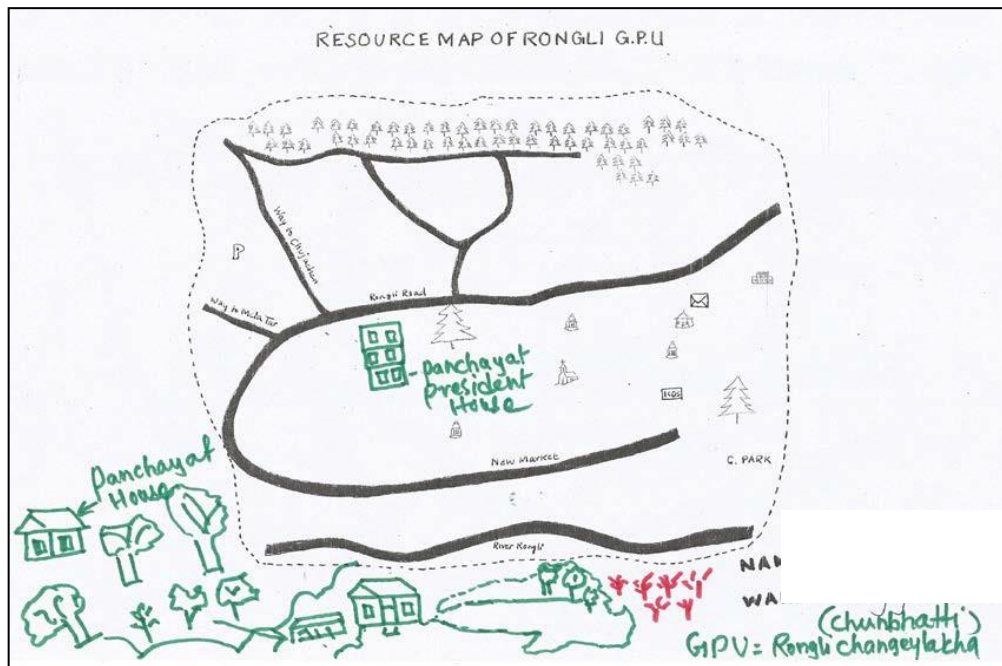 RESOURCE MAP OF RONGLI G.P.U
Way to Chujachen
P
Way to Mula Tar
Rongli Road
Panchayat
President
House
ICDS
New Market
C. PARK
Panchayat
House
River Rongli
(chunbhatti)
GPU = Rongli changeylakha